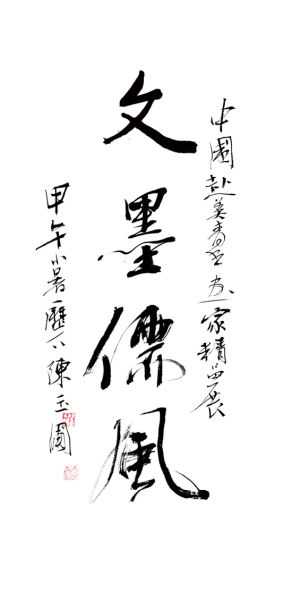 中國赴美家精品展
文墨儒風
甲午小暑歷下陳玉圃